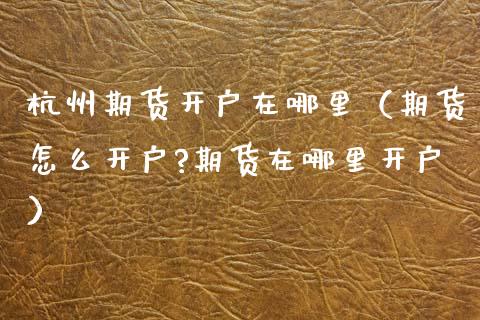 杭州期货开户在哪里（期货
怎么开户?期货在哪里开户
）